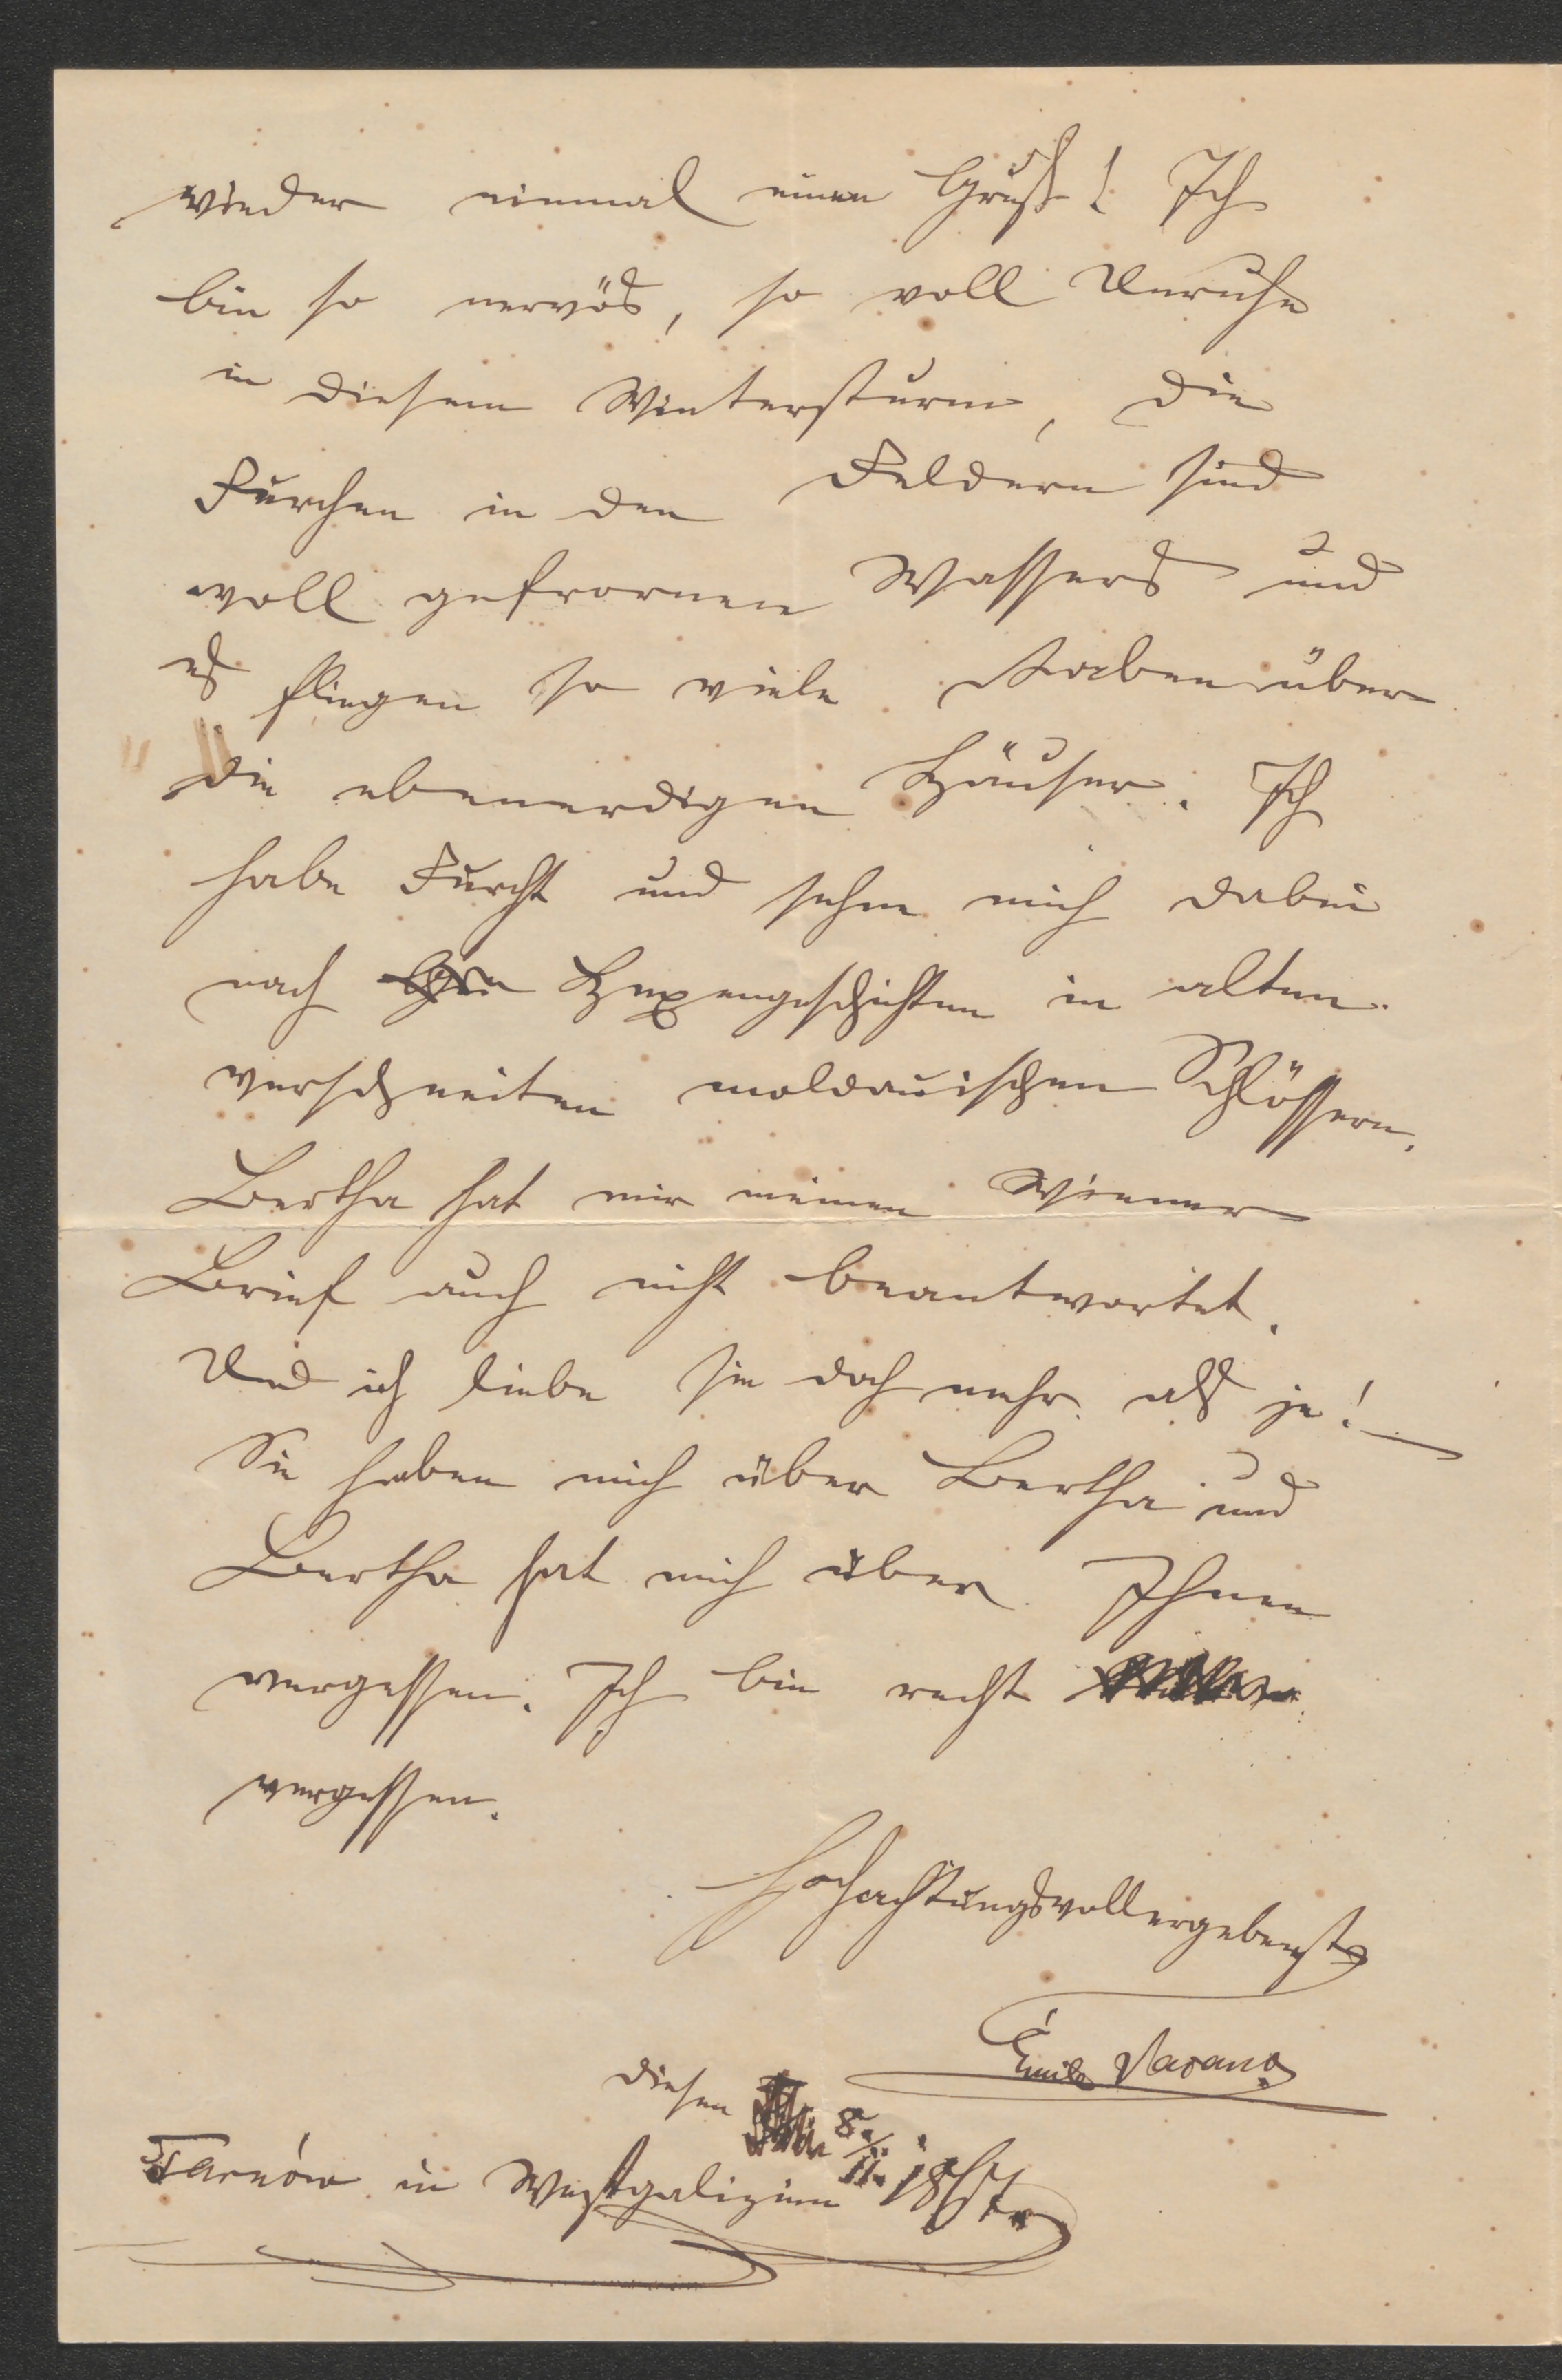 wieder einmal einen Gruß! Ich
bin so nervös, so voll Unruhe
in diesem Wintersturm, die
Furchen in den Feldern sind
voll gefrornen Wassers und
es fliegen so viele Raben über
die ebenerdigen Häuser. Ich
habe Furcht und sehne mich dabei
nach Hexengeschichten in alten
verschneiten moldauischen Schlössern.
Bertha hat mir meinen Wiener
Brief auch nicht beantwortet.
Und ich liebe sie doch mehr als je! —
Sie haben mich über Bertha und
Bertha hat mich über Ihnen
vergessen. Ich bin recht
vergessen.
Hochachtungsvollergebenst
Emil
diesen 8./II.
Tarnów in Westgalizien